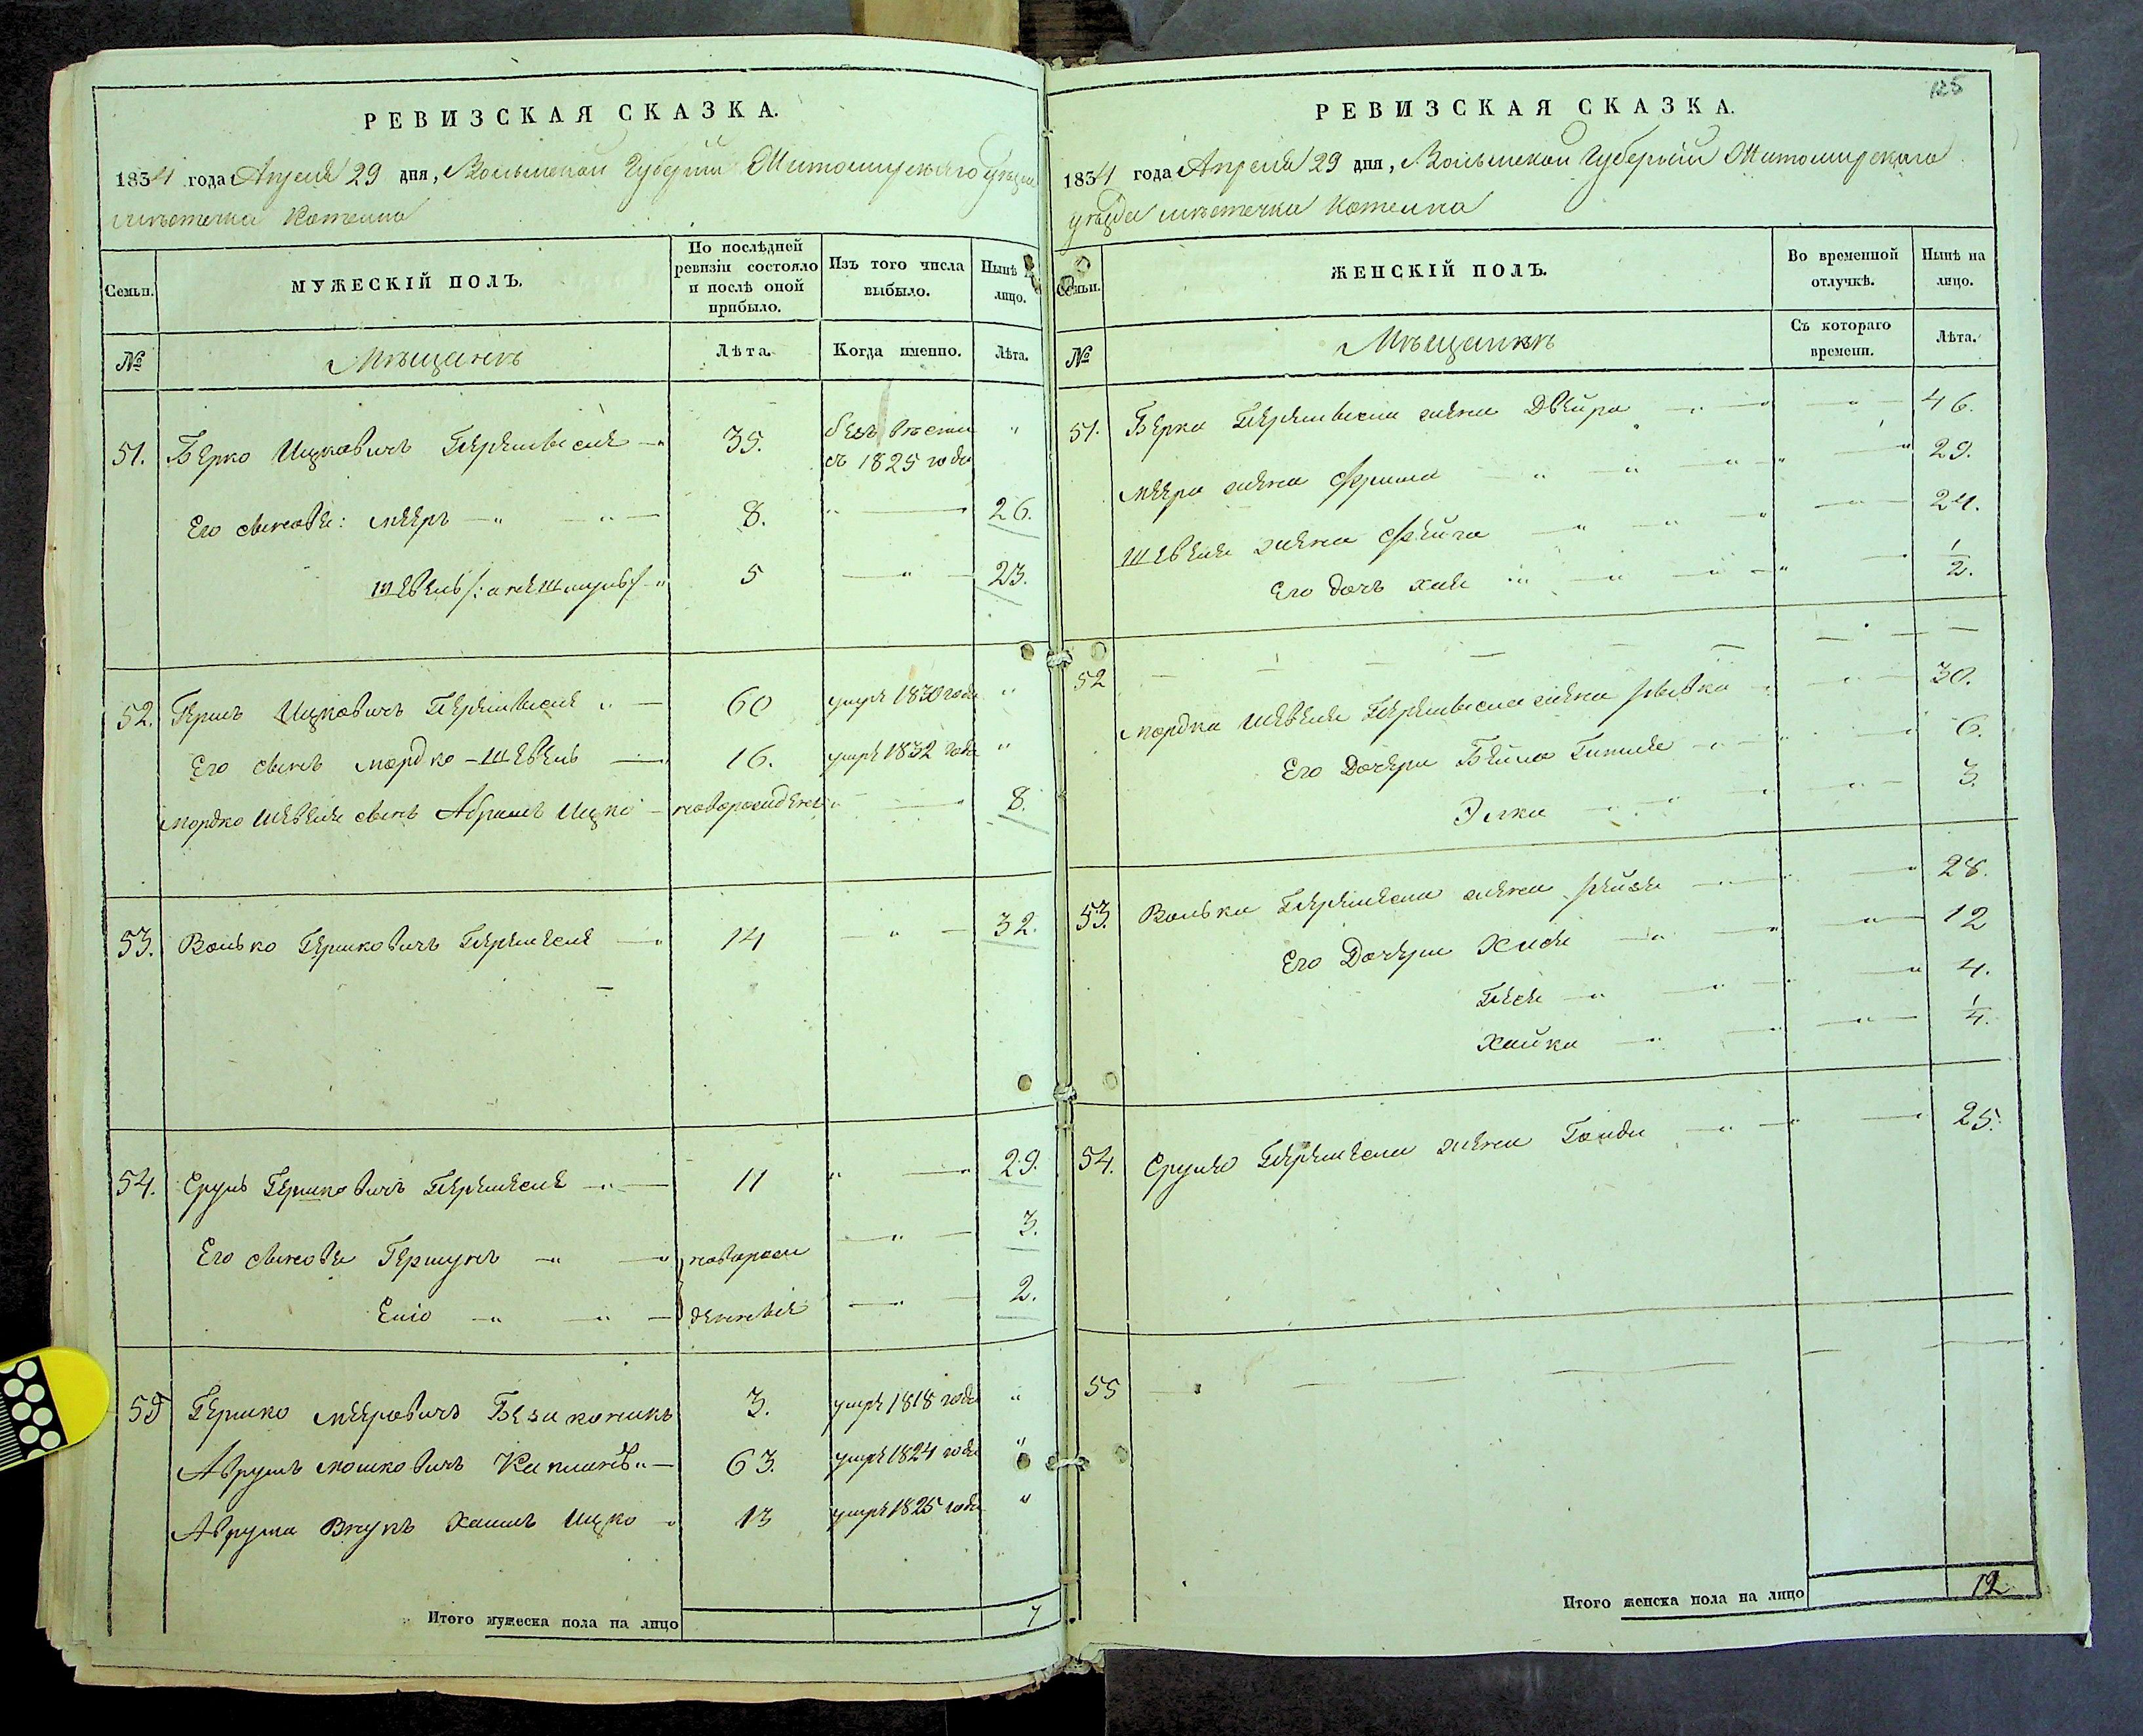 РЕВИЗСКАЯ СКАЗКА.
1834 года Апреля 29 дня, Волынской Губернии Житомирского уезда
мѣстечка Котелна
Семьи.
МУЖЕСКІЙ ПОЛЪ.
По послѣдней ревизіи состояло и послѣ оной прибыло.
Изъ того числа выбыло.
Нынѣ на лицо.
№
Мѣщанъ
Лѣта.
Когда именно.
Лѣта.
51. Берко Ицковичъ 35. безъ вѣсти "
съ 1825 года
Его сыновья: Мееръ 8. " 26.
Шевель 5 " 23.
52. Гершъ Ицковичъ 60 умре 1830 года "
Его сынъ Мордко-Шевель 16. умре 1832 года "
Мордко Шевеля сынъ Абрамъ Ицко новорожденъ " 8.
53. Волько Гершковичъ 14 " 32.
54. Сруль Гершковичъ 11 " 29.
Его сыновья Гершунъ новорож 3.
Еліо денные 2.
55 Гершко Меровичъ 3. умре 1818 года "
Аврумъ Мошковичъ Капланъ 63. умре 1824 года "
Аврума внукъ Хаимъ Ицко 13 умре 1825 года "
Итого мужеска пола на лицо 7
125
РЕВИЗСКАЯ СКАЗКА.
1834 года Апреля 29 дня, Волынской Губернии Житомирского
уезда мѣстечка Котелна
Семьи.
ЖЕНСКІЙ ПОЛЪ.
Во временной отлучкѣ.
Нынѣ на лицо.
№
Мѣщанкъ
Съ котораго времени.
Лѣта.
51. Берка жена Двейра 46.
Меера жена Фрима 29.
Шевеля жена Фейга 24.
Его дочь Хая 1/2.
52
Мордка Шевеля жена Рывка 30.
Его дочери Бейла Гитля 6.
Элка 3.
53. Волька жена Рейзя 28.
Его дочери Хися 12
Песя 4.
Хайка 1/4.
54. Сруля жена Голда 25.
55
Итого женска пола на лицо 12